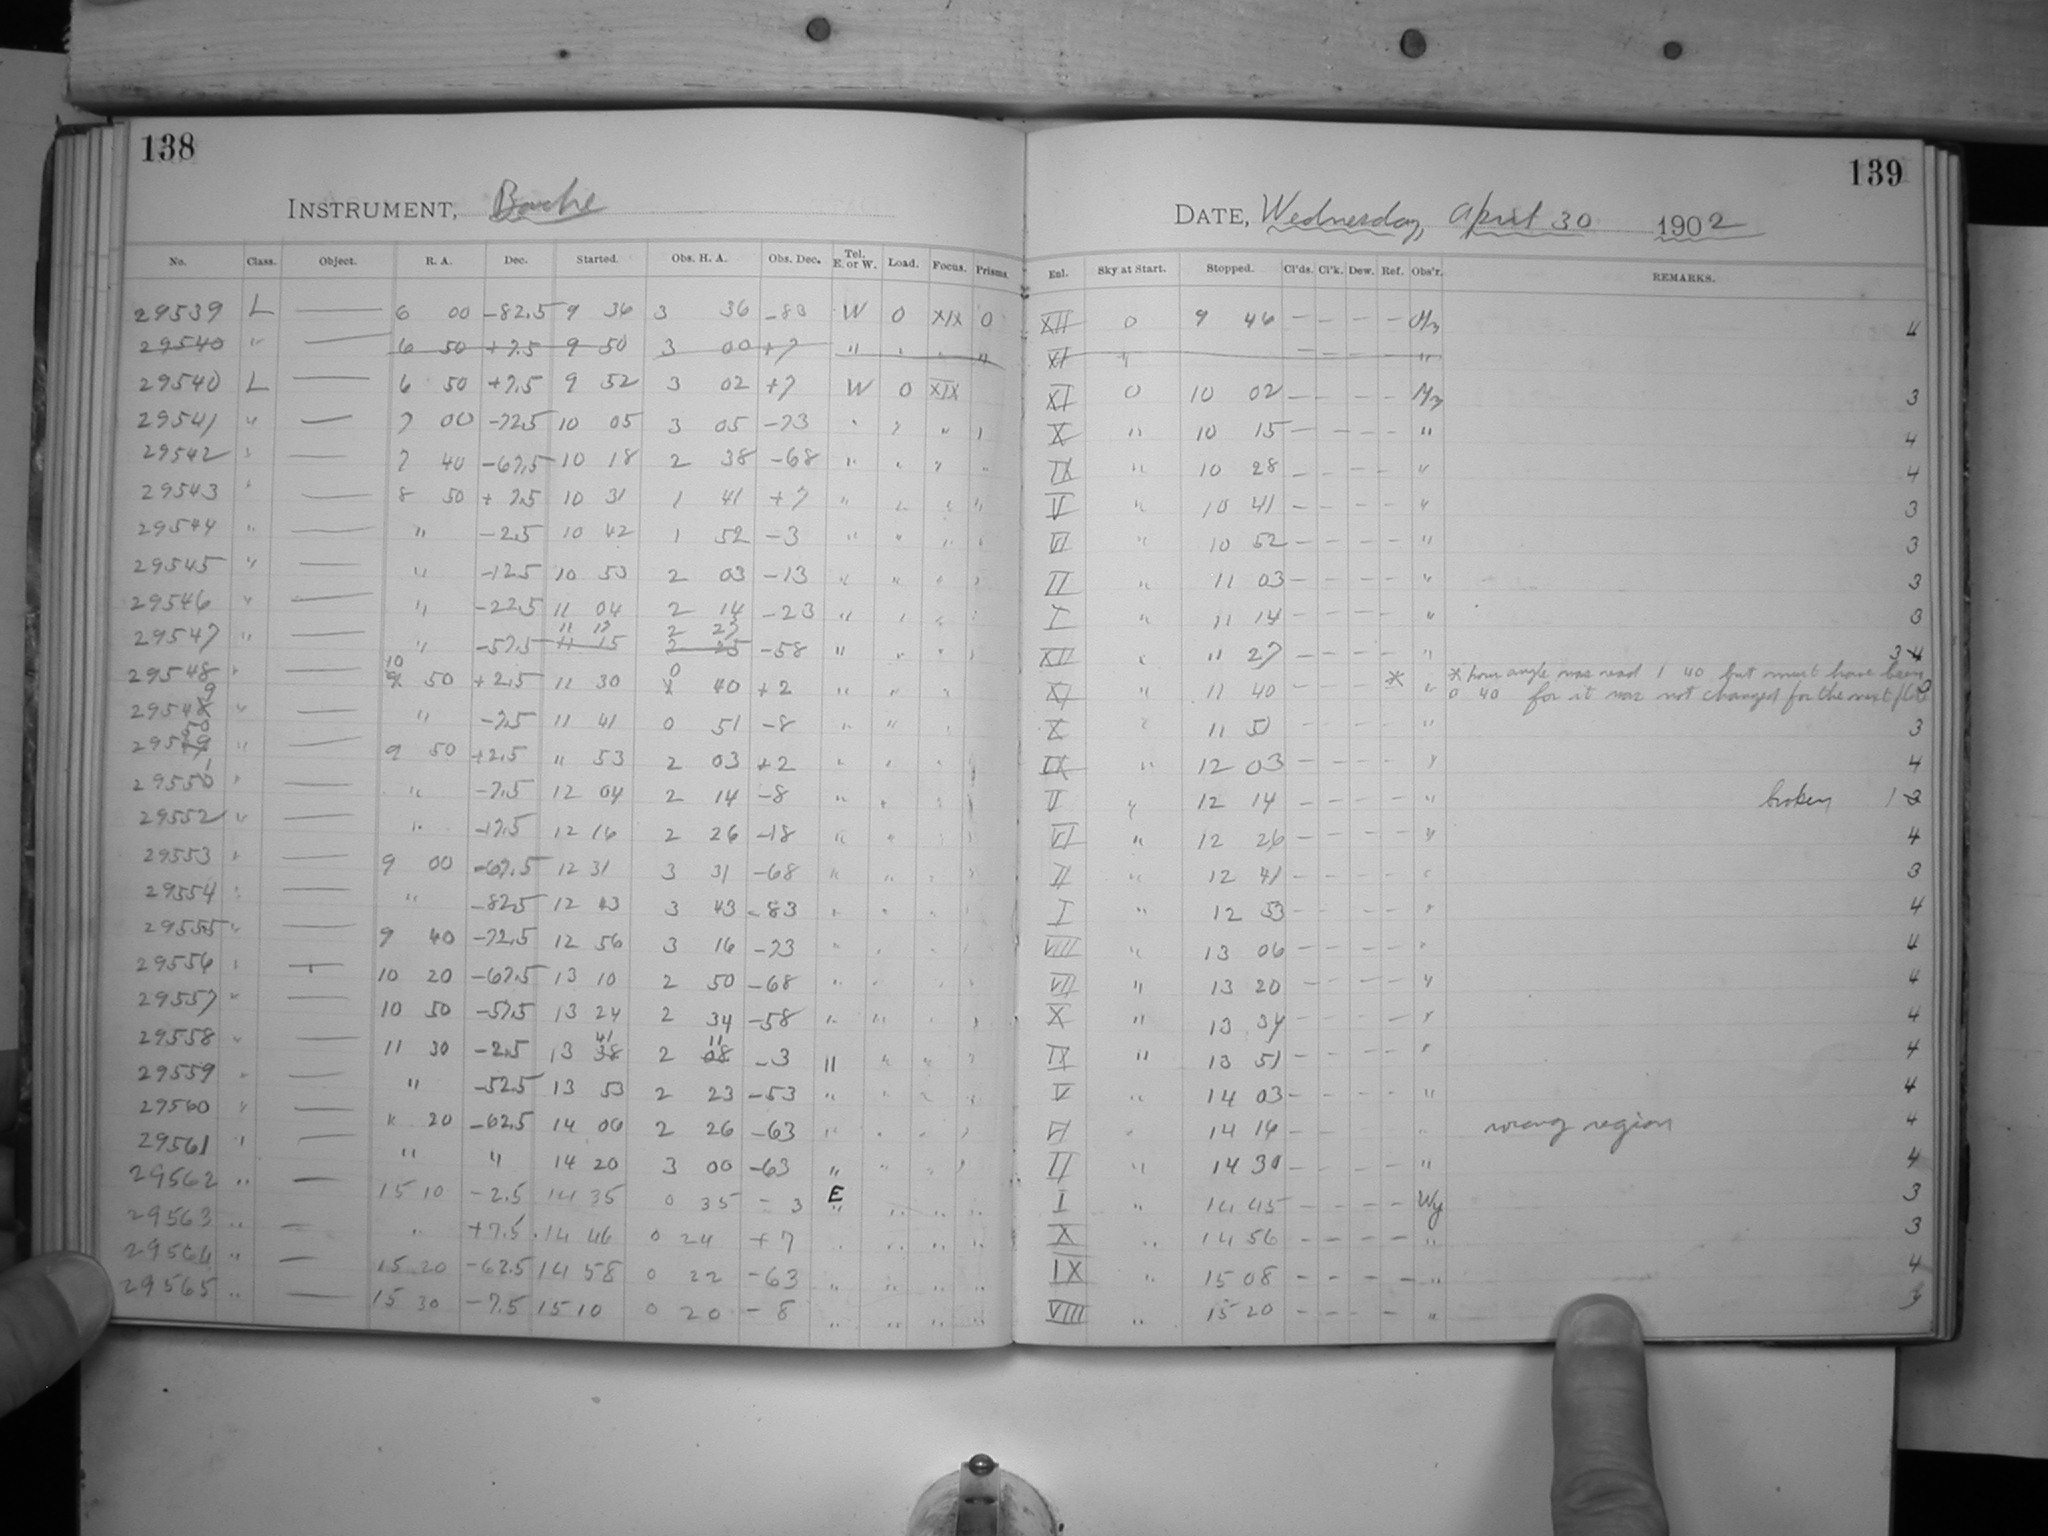 138
INSTRUMENT, Bache
No. Class. Object. R. A. Dec. Started. Obs. H. A. Obs. Dec. Tel. E. or W. Load. Focus. Prisms.
29539 L — 6 00 -82.5 9 36 3 36 -83 W 0 XIX 0
29540 " — 6 50 +7.5 9 50 3 00 +7 " " " "
29540 L — 6 50 +7.5 9 52 3 02 +7 W 0 XIX
29541 " — 7 00 -72.5 10 05 3 05 -73 " " " "
29542 " — 7 40 -67.5 10 18 2 38 -68 " " " "
29543 " — 8 50 +7.5 10 31 1 41 +7 " " " "
29544 " — " -2.5 10 42 1 52 -3 " " " "
29545 " — " -12.5 10 53 2 03 -13 " " " "
29546 " — " -22.5 11 04 2 14 -23 " " " "
11 17 2 27
29547 " — " -57.5 11 15 2 25 -58 " " " "
10 0
29548 " — 9 50 +2.5 11 30 1 40 +2 " " " "
29549 " — " -7.5 11 41 0 51 -8 " " " "
29550 " — 9 50 +2.5 " 53 2 03 +2 " " " "
29551 " — " -7.5 12 04 2 14 -8 " " " "
29552 " — " -17.5 12 16 2 26 -18 " " " "
29553 " — 9 00 -67.5 12 31 3 31 -68 " " " "
29554 " — " -82.5 12 43 3 43 -83 " " " "
29555 " — 9 40 -72.5 12 56 3 16 -73 " " " "
29556 " — 10 20 -67.5 13 10 2 50 -68 " " " "
29557 " — 10 50 -57.5 13 24 2 34 -58 " " " "
41 11
29558 " — 11 30 -2.5 13 38 2 08 -3 " " " "
29559 " — " -52.5 13 53 2 23 -53 " " " "
29560 " — " 20 -62.5 14 06 2 26 -63 " " " "
29561 " — " " 14 20 3 00 -63 " " " "
29562 " — 15 10 -2.5 14 35 0 35 -3 E " " "
29563 " — " +7.5 14 46 0 24 +7 " " " "
29564 " — 15 20 -62.5 14 58 0 22 -63 " " " "
29565 " — 15 30 -7.5 15 10 0 20 -8 " " " "
139
DATE, Wednesday, April 30 1902
Enl. Sky at Start. Stopped. Cl'ds. Cl'k. Dew. Ref. Obs'r. REMARKS.
XII 0 9 46 — — — — My 4
XI " — — — — "
XI 0 10 02 — — — — My 3
X " 10 15 — — — — " 4
IX " 10 28 — — — — " 4
V " 10 41 — — — — " 3
VI " 10 52 — — — — " 3
II " 11 03 — — — — " 3
I " 11 14 — — — — " 3
XII " 11 27 — — — — " 3 4
* hour angle was read 1 40 but must have been
XI " 11 40 — — — * " 0 40 for it was not changed for the next plate 3
X " 11 51 — — — — " 3
IX " 12 03 — — — — " 4
V " 12 14 — — — — " broken 1 3
VI " 12 26 — — — — " 4
II " 12 41 — — — — " 3
I " 12 53 — — — — " 4
VIII " 13 06 — — — — " 4
VII " 13 20 — — — — " 4
X " 13 34 — — — — " 4
IX " 13 51 — — — — " 4
V " 14 03 — — — — " 4
VI " 14 16 — — " wrong region 4
II " 14 30 — — — — " 4
I " 14 45 — — — — Wy 3
X " 14 56 — — — — " 3
IX " 15 08 — — — — " 4
VIII " 15 20 — — — — " 3